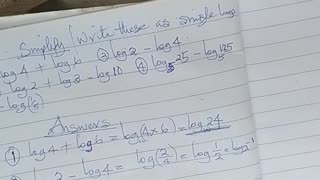 Simplify / Write these as single logs
log 4 + log 6 ② log 2 - log 4
log 2 + log 3 - log 10 ④ log₅ 25 - log₅ 125
Answers
① log 4 + log 6 = log(4 x 6) = log 24
log 2 - log 4 = log(2/4) = log 1/2 = log 2⁻¹